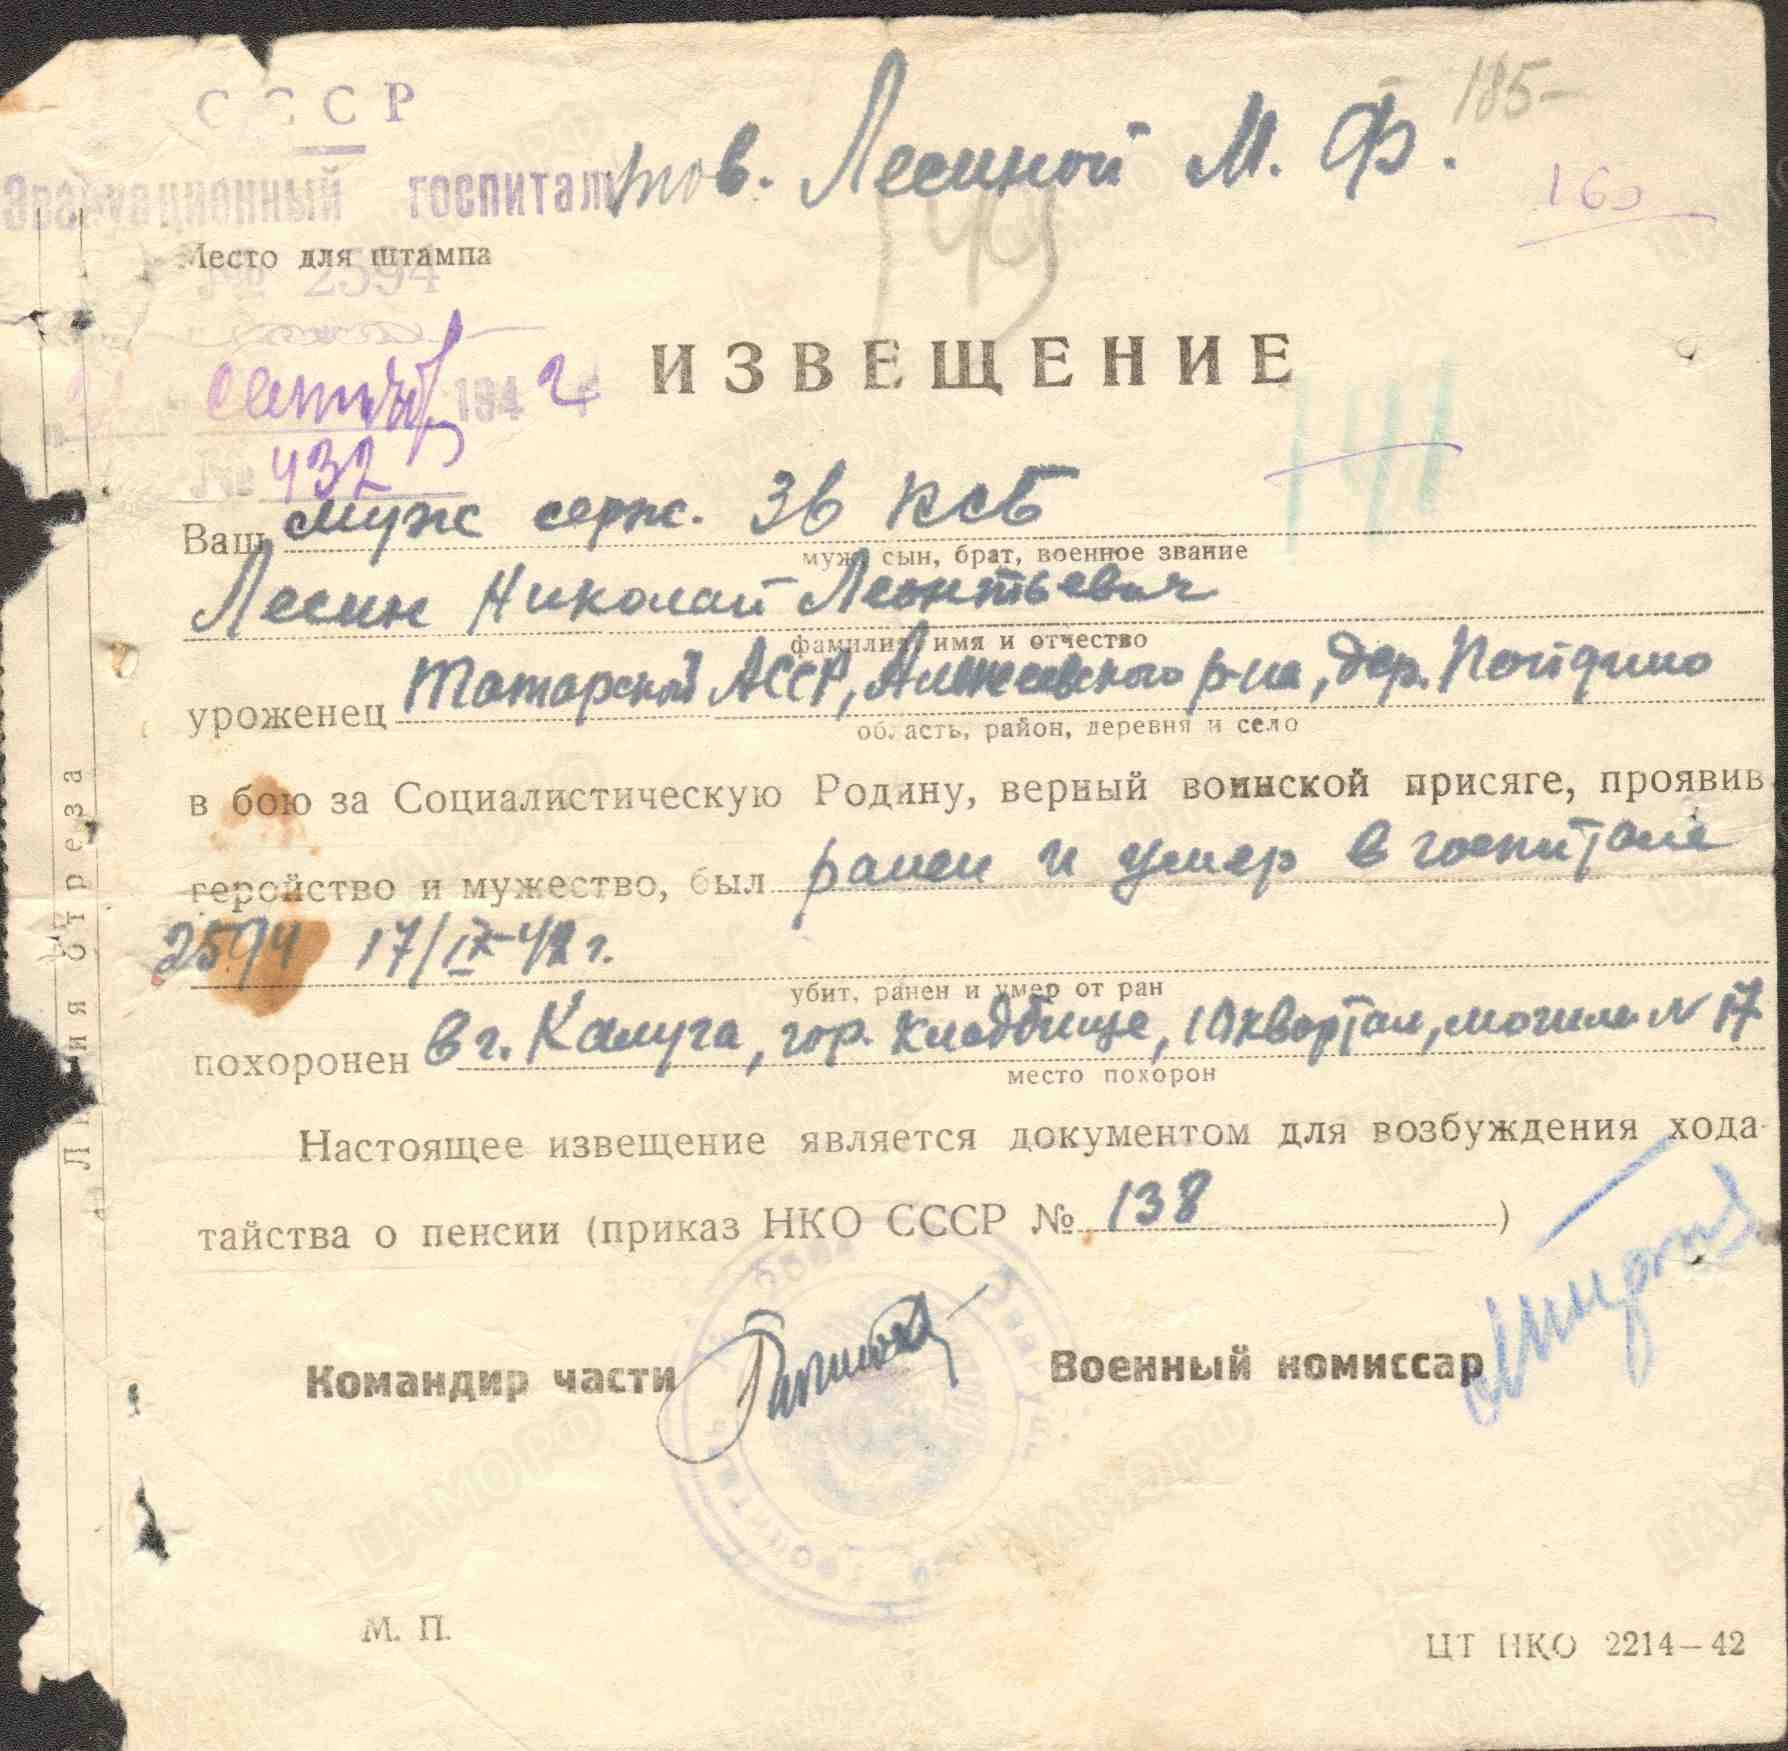 СССР
185-
тов. Лесиной М. Ф.
Эвакуационный госпиталь
160
Место для штампа
№ 2594
149
сентябр 1942
ИЗВЕЩЕНИЕ
141
№ 432
Ваш муж серж. 36 КСБ
муж, сын, брат, военное звание
Лесин Николай Леонтьевич
фамилия, имя и отчество
уроженец Татарской АССР, Алексеевского р-на, дер. Пойдино
область, район, деревня и село
в бою за Социалистическую Родину, верный воинской присяге, проявив
геройство и мужество, был ранен и умер в госпитале
2594 17/IX-42 г.
убит, ранен и умер от ран
похоронен в г. Калуга, гор. кладбище, 10 квартал, могила N 17
место похорон
Настоящее извещение является документом для возбуждения хода-
тайства о пенсии (приказ НКО СССР № 138)
Командир части
Военный комиссар
М. П.
ЦТ НКО 2214–42
Линия отреза
ЦАМО РФ